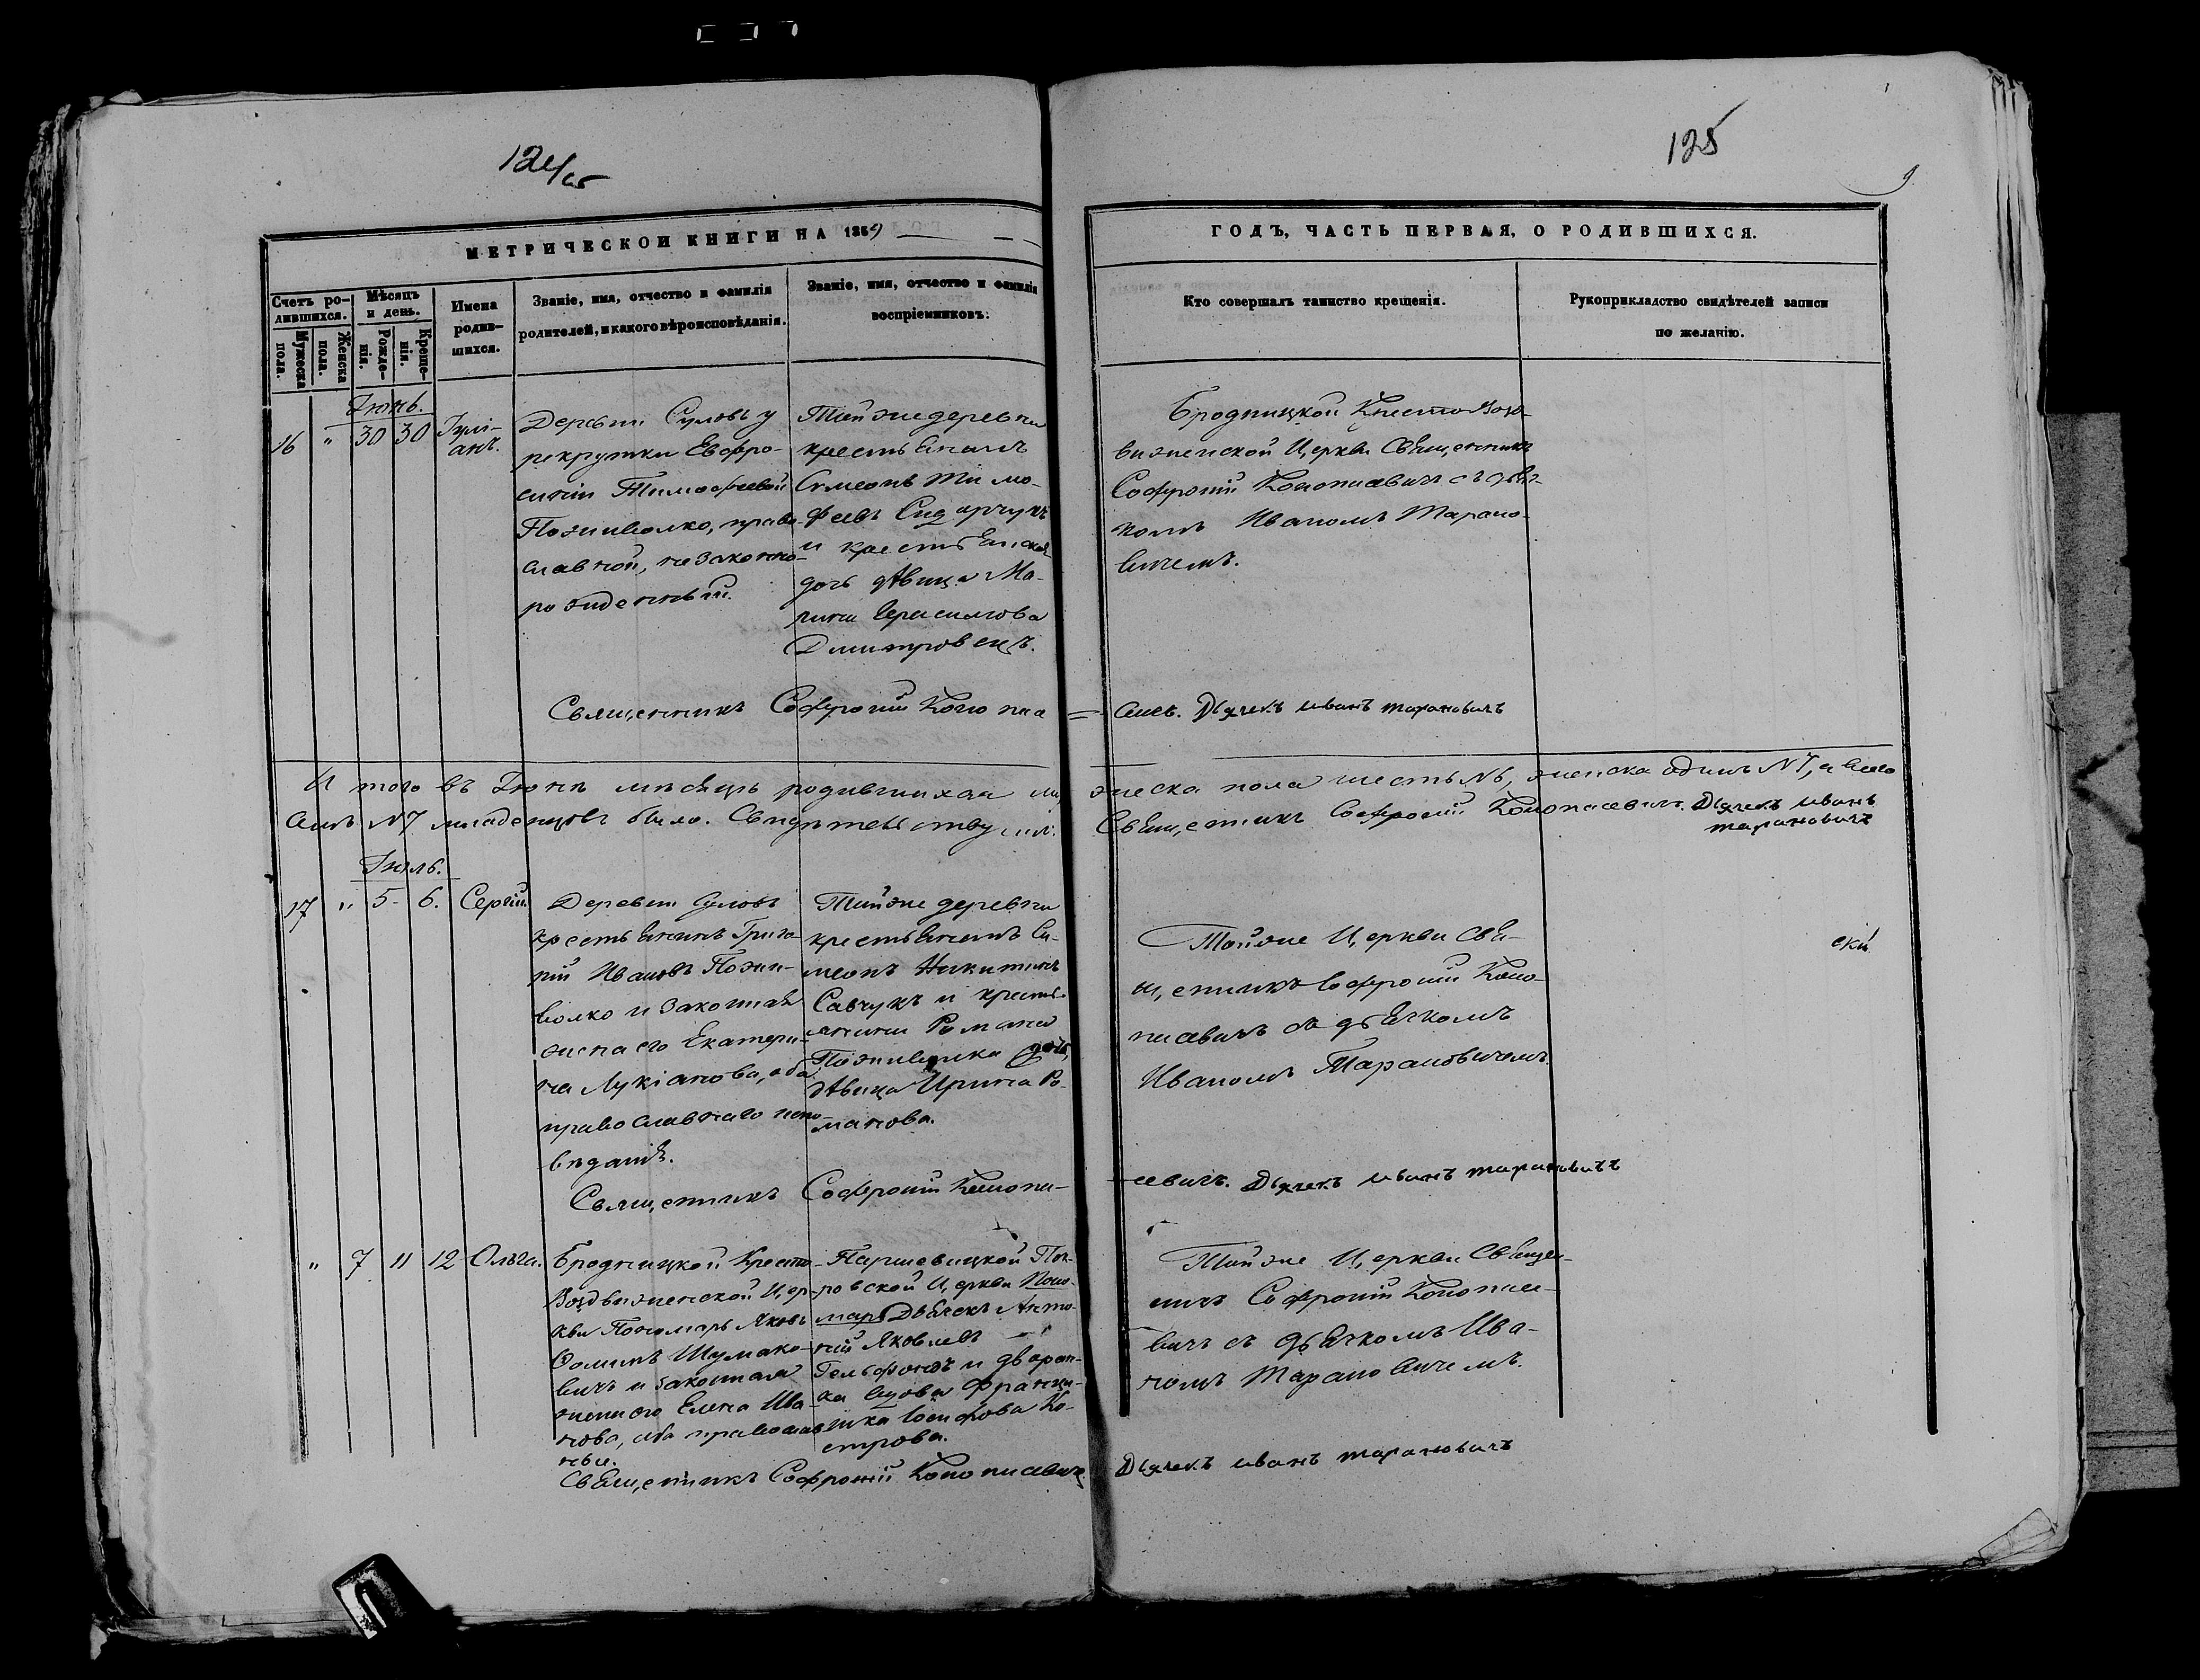 124/об
125
9
МЕТРИЧЕСКОЙ КНИГИ НА 1859
ГОДЪ, ЧАСТЬ ПЕРВАЯ, О РОДИВШИХСЯ.
Счетъ ро-
дившихся.
Мужеска
пола.
Женска
пола.
Мѣсяцъ
и день.
Рожде-
нія.
Креще-
нія.
Имена
родив-
шихся.
Званіе, имя, отчество и фамилія
родителей, и какого вѣроисповѣданія.
Званіе, имя, отчество и фамилія
воспріемниковъ.
Кто совершалъ таинство крещенія.
Рукоприкладство свидѣтелей записи
по желанію.
Іюнь.
16 " 30 30
Іулі-
анъ.
Деревни Суловъ у
рекрутки Евфро-
синіи Тимофеевой
Поживолко, право-
славной, незаконно-
рожденный.
Тойже деревни
крестьянинъ
Симеонъ Тимо-
феевъ Сидорчукъ
и крестьянская
дочь дѣвица Ма-
рина Герасимова
Дмитровецъ.
Бродницкой Кресто-Воздо-
виженской Церкви Священникъ
Софроній Конопасевичъ съ дьяч-
комъ Иваномъ Тарано-
вичемъ.
Священникъ Софроній Конопа=
севичъ. Дьячекъ иванъ тарановичъ
И того въ Іюнѣ мѣсяцѣ родившихся му-
жеска пола шесть №6, женска одинъ №7, а всего
семь №7 младенцовъ было. Свидѣтельствуемъ:
Священникъ Софроній Конопасевичъ. Дьячекъ иванъ
тарановичъ
Іюль.
17 " 5 6.
Сергій.
Деревни Суловъ
крестьянинъ Григо-
рій Ивановъ Пожи-
волко и законная
жена его Екатери-
на Лукіанова, оба
православнаго испо-
вѣданія.
Тойже деревни
крестьянинъ Си-
меонъ Никитинъ
Савчукъ и кресть-
янина Романа
Поживолка дочь
дѣвица Ирина Ро-
манова.
Тойже Церкви Свя-
щенникъ Софроній Коно-
пасевичъ съ дьячкомъ
Иваномъ Тарановичемъ.
Священникъ Софроній Конопа-
севичъ. Дьячекъ иванъ тарановичъ
" 7 11 12
Ольга.
Бродницкой Кресто-
Воздвиженской Цер-
кви Пономарь Яковъ
Фоминъ Шумако-
вичъ и законная
жена его Елена Ива-
нова, оба православ-
ные.
Паршевицкой Пок-
ровской Церкви Поно-
марь Дьячекъ Анто-
ній Яковлевъ
Гельфондъ и дворян-
ка вдова Франци-
шка Іосифова Ко-
строва.
Тойже Церкви Священ-
никъ Софроній Конопасе-
вичъ съ дьячкомъ Ива-
номъ Тарановичемъ.
Священникъ Софроній Конопасевичъ
Дьячекъ иванъ тарановичъ